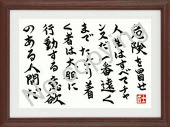 危険を冒せ
人生はすべてチャ
ンスだ一番遠く
までたどり着
く者は大胆に
行動する意欲
のある人間だ